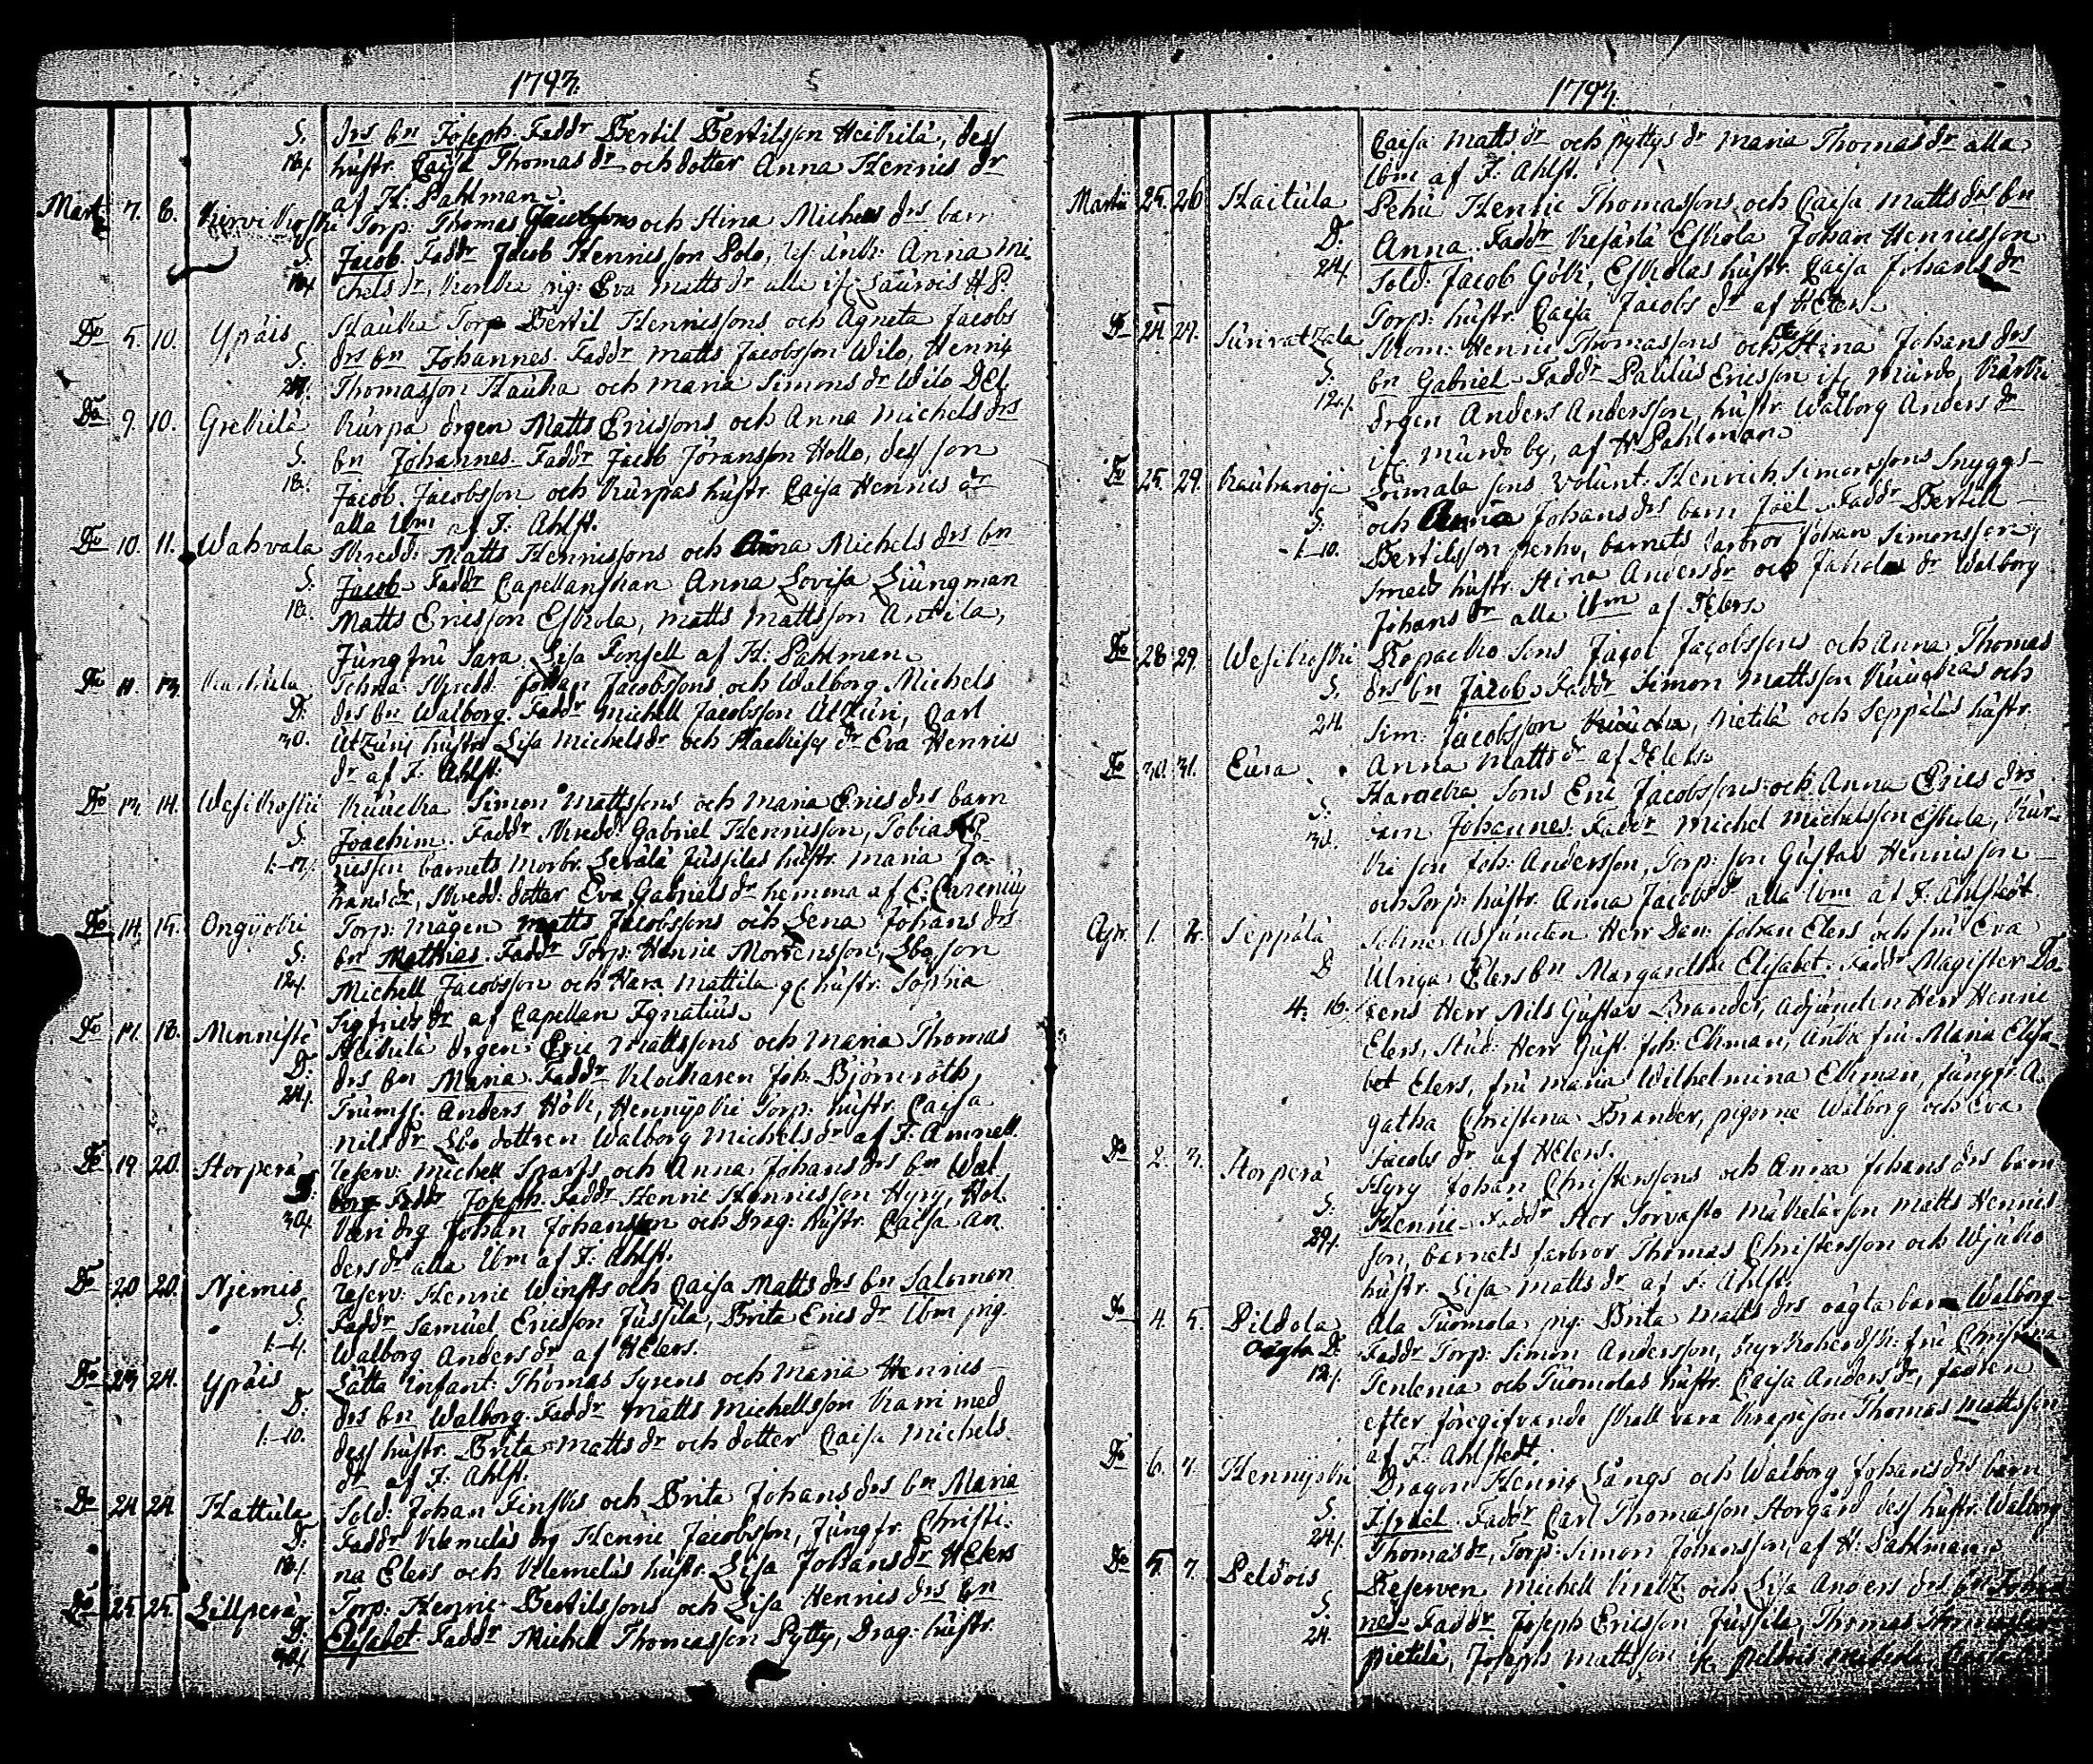 1793.
S. drs bn Joseph. Faddr Bertil Bertilsson Heikilä, dess
18/. hustr. Caisa Thomas dr och dotter Anna Henrics dr
af H. Pahlman.
Mart 7. 8. Kirvikoski Torp: Thomas Jacobssons och Stina Michels drs barn
S. Jacob. Faddr Jacob Henricsson Polo, Anna Mi-
chels dr, pig: Eva Matts dr alla if: Saurois H P.
Do 5. 10. Ypäis Hauka Torp Bertil Henricssons och Agneta Jacobs
S. drs bn Johannes. Faddr Matts Jacobsson Wilo, Henric
24/. Thomasson Hauka och Maria Simons dr Wilo DEl.
Do 9. 10. Grekilä Kurpa drgen Matts Ericssons och Anna Michels drs
S. bn Johannes. Faddr Jacob Jöransson Hollo, dess son
18. Jacob Jacobsson och Kurpas hustr. Caisa Henrics dr
alla ibm af F. Ahlst.
Do 10. 11. Wahvala Skredd: Matts Henricssons och Anna Michels drs bn
S. Jacob. Faddr Capellanskan Anna Lovisa Liungman
18. Matts Ericsson Eskola, Matts Mattsson Antila,
Jungfru Sara Lisa Forsell af H. Pahlman.
Do 11. 13. Skredd: Johan Jacobssons och Walborg Michels
D. drs bn Walborg. Faddr Michell Jacobsson Utzuri, Carl
30. Utzuris hustru Lisa Michels dr och dr Eva Henrics
dr af F. Ahlst.
Do 13. 14. Wesikoski Simon Mattssons och Maria Erics drs barn
S. Joachim. Faddr Skredd: Gabriel Henricsson, Tobias
1.–17/. barnets morbr. Jussilas hustr. Maria Jo-
hans dr, Skredd: dotter Eva Gabriels dr hemma af E. Carenius
Do 14. 15. Ongyörki Torp: mågen Matts Jacobssons och Lena Johans drs
S. bn Mathias. Faddr Torp: Henric Mortensson, Sbo, son
12/. Michell Jacobsson och Hara Mattila gl hustr. Sophia
Sigfrids dr af Capellan Ignatius.
Do 17. 18. Mennistö Heikilä drgen Eric Mattssons och Maria Thomas
D. drs bn Maria. Faddr Klockaren Joh: Björnroth,
24/. Trumsl. Anders Hök, Hennijoki Torp: hustr. Caisa
Nils dr Sbo dottren Walborg Michels dr af F. Amnell.
Do 19. 20. Storperä Reserv: Michell Sparfs och Anna Johans drs bn Wal
borg Faddr Joseph. Faddr Henric Henricsson Hyry, Hol
30/. drg Johan Johansson och Drag: hustr. Caisa An
ders dr alla ibm af F. Ahlst.
Do 20 20. Njemis Reserv: Henric Winfts och Caisa Matts drs bn Salomon
S. Faddr Samuel Ericsson Jussila, Brita Erics dr ibm pig.
1.–4/. Walborg Anders dr af HElers.
Do 23 24. Ypäis Lätta Infant: Thomas Syrens och Maria Henrics
D. drs bn Walborg. Faddr Matts Michellsson Karri med
1.–10. dess hustr. Brita Matts dr och dotter Caisa Michels
dr af F. Ahlst.
Do 24 24 Hattula Sold: Johan Finskes och Brita Johans drs bn Maria
D. Faddr Klemelas drg Henric Jacobsson, Jungfr. Christi-
18/. na Elers och Klemelas hustr. Lisa Johans dr HElers
Do 25 25. Lillperä Torp: Henric Bertilssons och Lisa Henrics drs bn
D. Elisabet Faddr Michell Thomasson Pytty, Drag: hustr.
1793.
Caisa Matts dr och pyttys dr Maria Thomas dr alla
ibm af F. Ahlst.
Martii 25. 26 Haitula Pehu Henric Thomassons och Caisa Matts drs bn
D. Anna. Faddr Eskola Johan Henricsson
24/. Sold: Jacob Gök, Eskolas hustr. Caisa Johans dr
Torp: hustr. Caisa Jacobs dr af HElers.
Do 25. 27. Surivatzala Henric Thomassons och Stina Johans drs
S. bn Gabriel. Faddr Paulus Ericsson if: Murdo,
12/. drgen Anders Andersson, hustr. Walborg Anders dr
if: Murdo by, af H. Pahlman
Do 25 29. Rauhanoja Loimala sons Volunt. Henrich Simonssons Snyggs
S. och Anna Johans drs barn Joël. Faddr Bertill
1.–10. Bertilsson perho, barnets farbror Johan Simonsson,
smeds hustr. Stina Anders dr och dr Walborg
Johans dr alla ibm af HElers.
Do 28 29. Wesikoski sons Jacob Jacobssons och Anna Thomas
S. drs bn Jacob. Faddr Simon Mattsson och
24. Sim: Jacobsson, Pietilä och Seppäläs hustr.
Anna Matts dr af DElers.
Do 30. 31. Eura sons Eric Jacobssons och Anna Erics drs
S. barn Johannes. Faddr Michel Michelsson Eskola, Kur-
30. ki son Joh: Andersson, Torp: son Gustav Henricsson
och Torp: hustr. Anna Jacobs dr alla ibm af F. Ahlstedt
Apr. 1. 2. Seppälä Adjuncten Herr Dan: Johan Elers och fru Eva
D Ulrica Elers bn Margaretha Elisabet. Faddr Magister Do-
4. 16. cens Herr Nils Gustav Brander, adjuncten Herr Henric
Elers, Stud: Herr Gust. Joh: Ekman, änke fru Maria Elisa-
bet Elers, fru Maria Wilhelmina Ekman, Jungfr. A-
gatha Christina Brander, pigorne Walborg och Eva
Jacobs dr af HElers.
Do 2. 3. Storperä Hyry Johan Christerssons och Anna Johans drs barn
S. Henric. Faddr Stor Torvasto Mäkelä son Matts Henrics
29/. son, barnets farbror Thomas Christersson och
hustr. Lisa Matts dr af F. Ahlst.
Do 4. 5. Pildola Ala Tuomola pig: Brita Matts drs oägta barn Walborg
oägta D. Faddr Torp: Simon Andersson, fru Christina
12/. Tenlenia och Tuomolas hustr. Caisa Anders dr, fadren
efter föregifvande skall vara son Thomas Mattsson
af F. Ahlstedt.
Do 6. 7. Hennijoki Dragon Henric Långs och Walborg Johans drs barn
S. Israel. Faddr Carl Thomasson Storgård dess hustr. Walborg
24/. Thomas dr, Torp: Simon Johansson, af H. Pahlman
Do 5. 7. Peldois Reserven Michell och Lisa Anders drs bn Johan
S. nes. Faddr Joseph Ericsson Jussila, Thomas
24. Pietilä, Joseph Mattsson if: